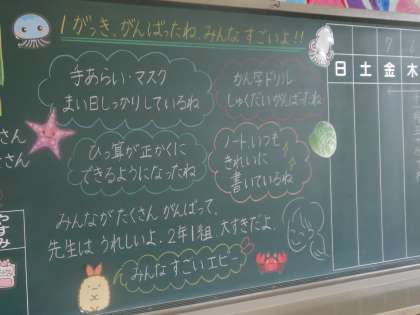 1がっき、がんばったね。みんなすごいよ!!
手あらい・マスク
まい日しっかりしているね
かん字ドリル
しゅくだいがんばったね
ひっ算が正かくに
できるようになったね
ノート、いつも
きれいに
書いているね
みんながたくさんがんばって、
先生はうれしいよ。2年1組 大すきだよ。
みんなすごいエビー
さん
さん
やすみ
7
日土金木